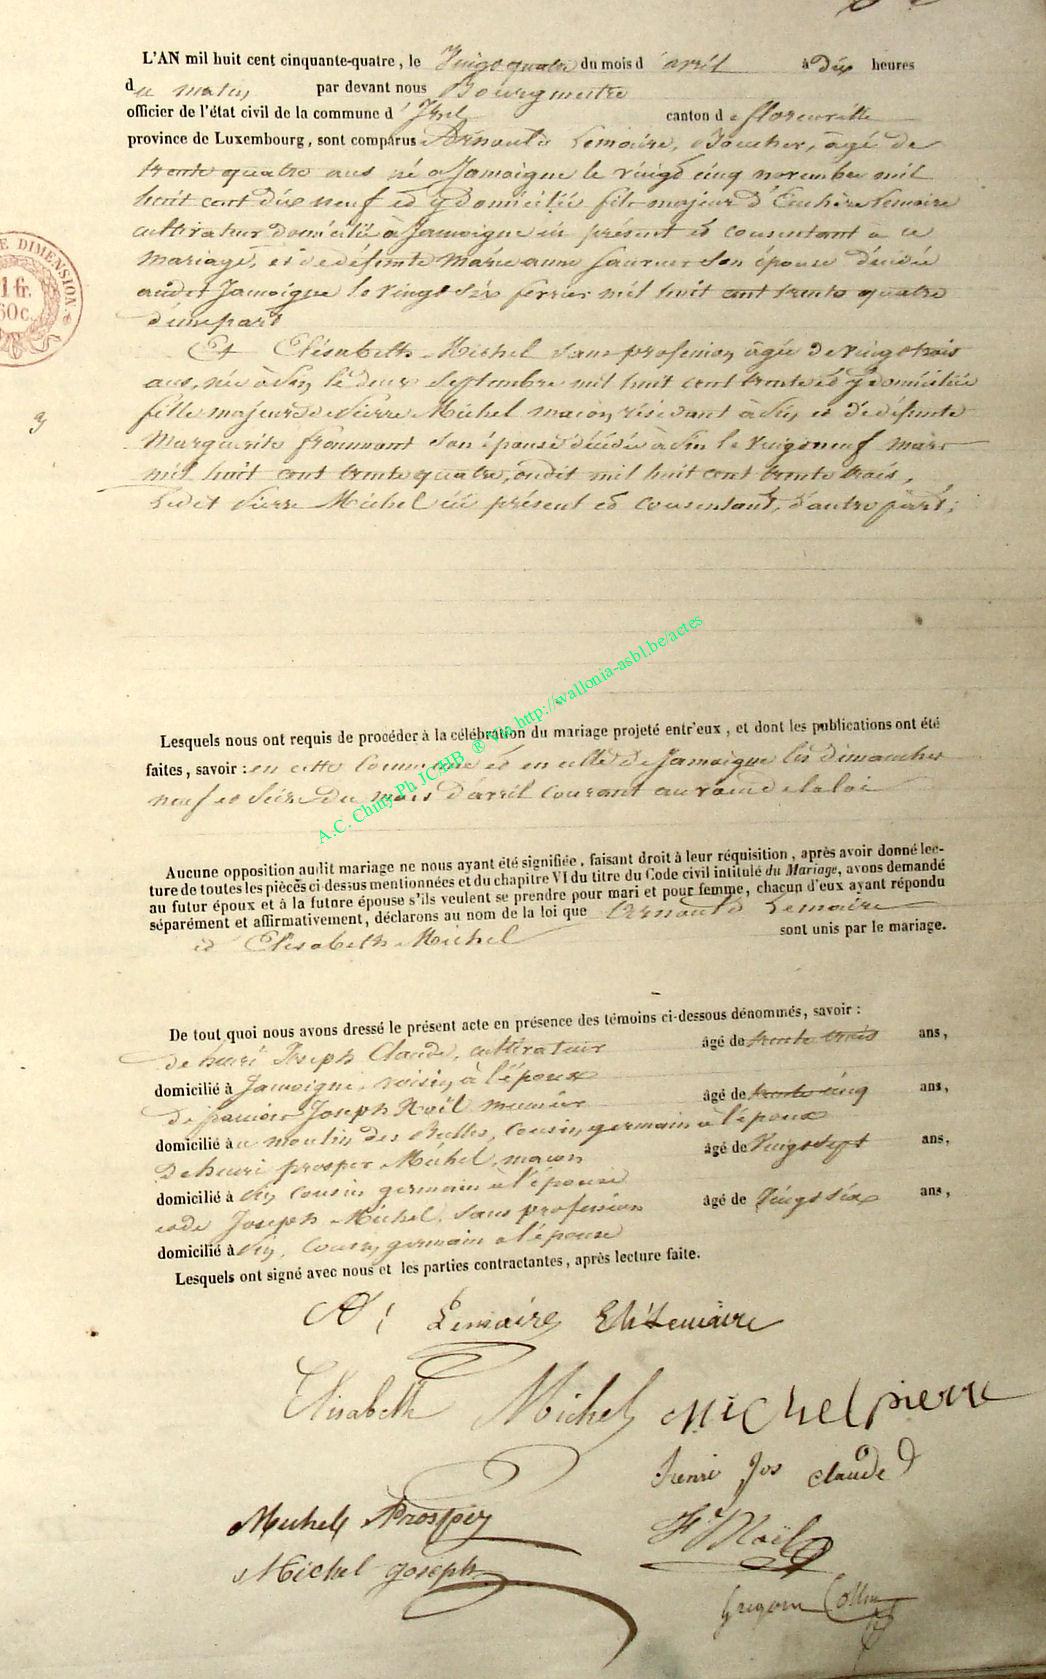 L'AN mil huit cent cinquante-quatre, le Vingt quatre du mois d'avril à dix heures
du matin par devant nous Bourgmestre
officier de l'état civil de la commune d' Izel canton de florenville
province de Luxembourg, sont comparus Arnould Lemaire, Boucher, âgé de
trente quatre ans né à Jamoigne le vingt cinq novembre mil
huit cent dix neuf et y domicilié fils majeur d' Lemaire
cultivateur domicilié à Jamoigne ici présent et consentant à ce
mariage, et de défunte Marie anne son épouse décédée
audit Jamoigne le vingt six février mil huit cent trente quatre
d'une part
Et Elisabeth Michel sans profession, âgée de vingt trois
ans, née à Pin, le deux septembre mil huit cent trente et y domiciliée
fille majeure de Pierre Michel maçon, résidant à Pin, et de défunte
Marguerite son épouse décédée à Pin le vingt neuf mars
mil huit cent trente quatre, on dit mil huit cent trente trois,
Ledit Pierre Michel ici présent et consentant, d'autre part;
DE DIMENSION
1 fr.
60 c.
Lesquels nous ont requis de procéder à la célébration du mariage projeté entr'eux, et dont les publications ont été
faites, savoir: en cette Commune et en celle de Jamoigne les dimanches
neuf et seize du mois d'avril courant au vœu de la loi
Aucune opposition audit mariage ne nous ayant été signifiée, faisant droit à leur réquisition, après avoir donné lec-
ture de toutes les pièces ci-dessus mentionnées et du chapitre VI du titre du Code civil intitulé du Mariage, avons demandé
au futur époux et à la future épouse s'ils veulent se prendre pour mari et pour femme, chacun d'eux ayant répondu
séparément et affirmativement, déclarons au nom de la loi que Arnould Lemaire
et Elisabeth Michel sont unis par le mariage.
De tout quoi nous avons dressé le présent acte en présence des témoins ci-dessous dénommés, savoir:
de henri Joseph Claude, cultivateur âgé de trente trois ans,
domicilié à Jamoigne, voisin à l'époux
de Joseph Noël meunier âgé de trente cinq ans,
domicilié au moulin des Bulles, Cousin germain à l'époux
de henri prosper Michel, maçon âgé de Vingt sept ans,
domicilié à Pin cousin germain à l'épouse
et de Joseph Michel, sans profession âgé de Vingt six ans,
domicilié à Pin, Cousin germain à l'épouse
Lesquels ont signé avec nous et les parties contractantes, après lecture faite.
A: Lemaire Lemaire
Elisabeth Michel Michel pierre
henri Jos Claude
Michel Prosper Noël
Michel joseph
Collin
A.C. Chiny Ph JC.HB ® via http://wallonia-asbl.be/actes